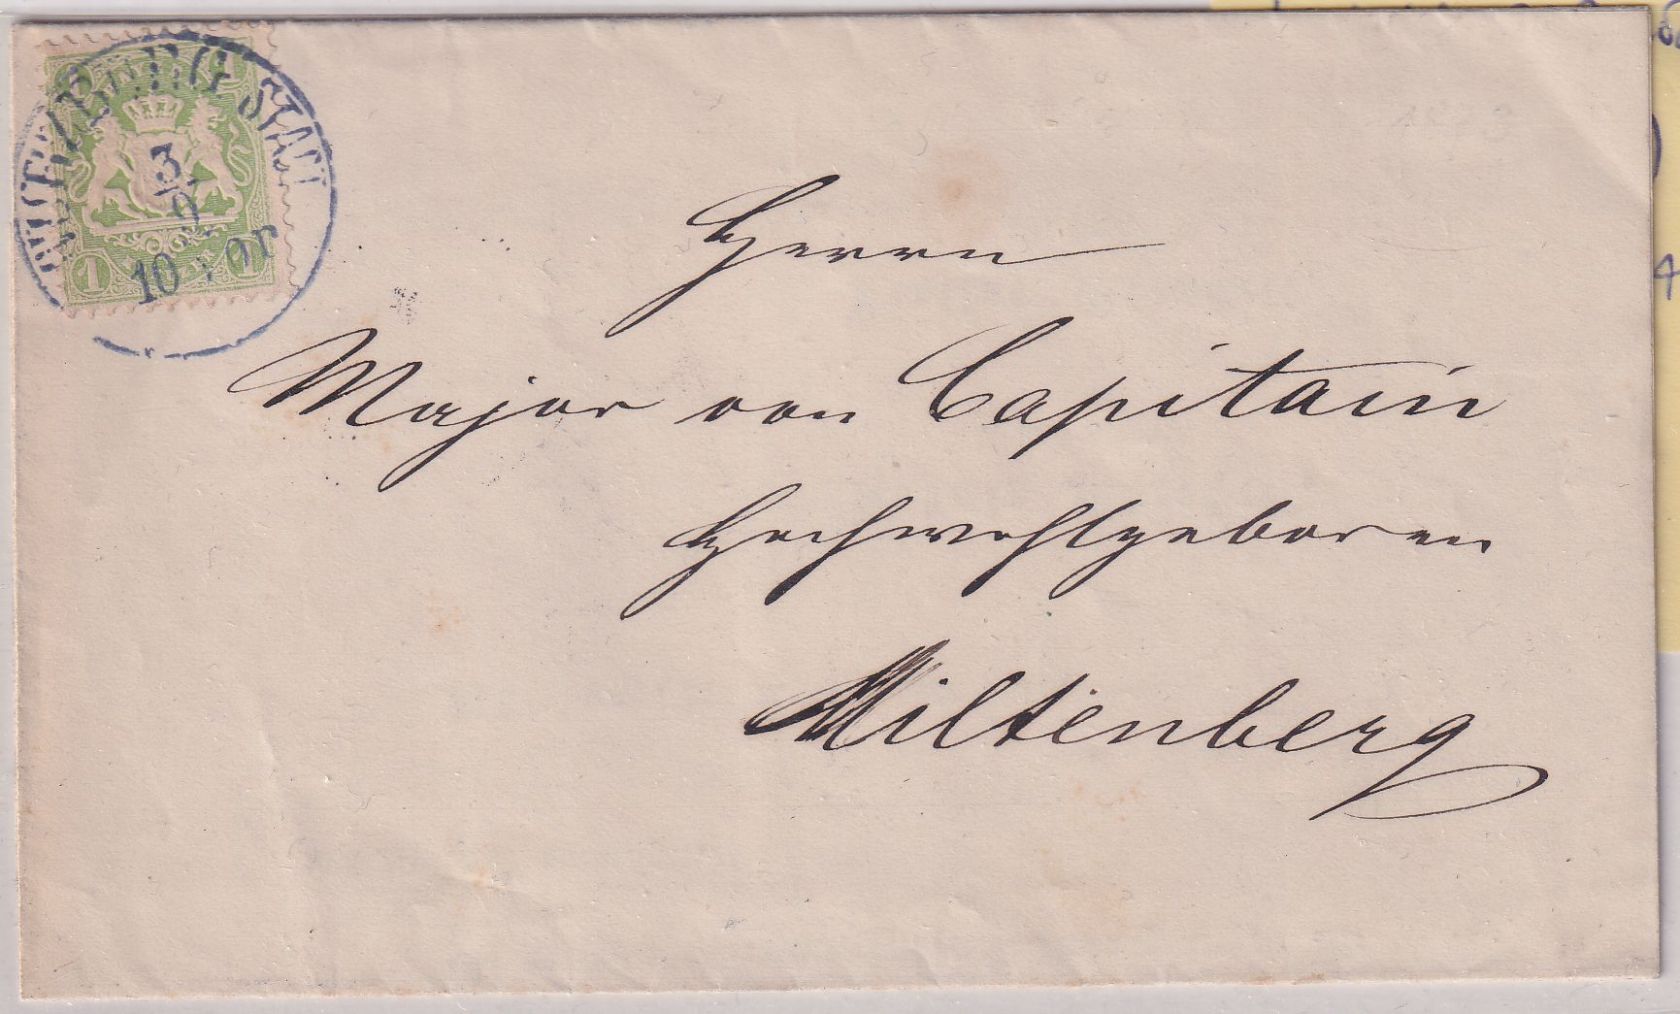 1 1
STADT
3/9
10 Vor
1 1
Herrn
Major von Capitain
Hochwohlgeboren
Miltenberg
4